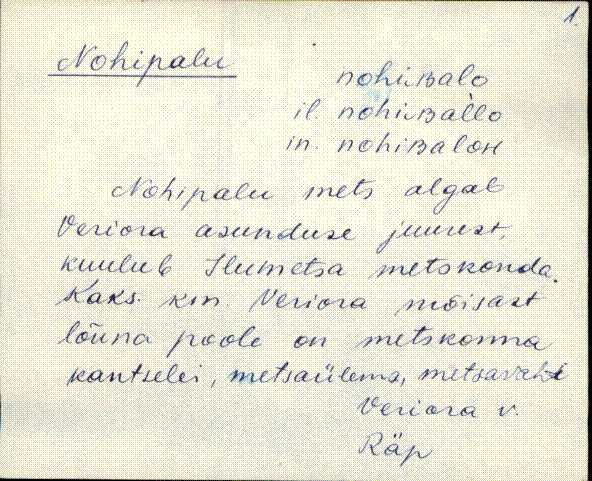 1.
Nohipalu
nohiʙalo
il. nohiʙal̀lo
in. nohiʙaloʜ
Nohipalu mets algab
Veriora asunduse juurest,
kuulub Ilumetsa metskonda.
Kaks km. Veriora mõisast
lõuna poole on metskonna
kantselei, metsaülema, metsavaht
Veriora v.
Räp